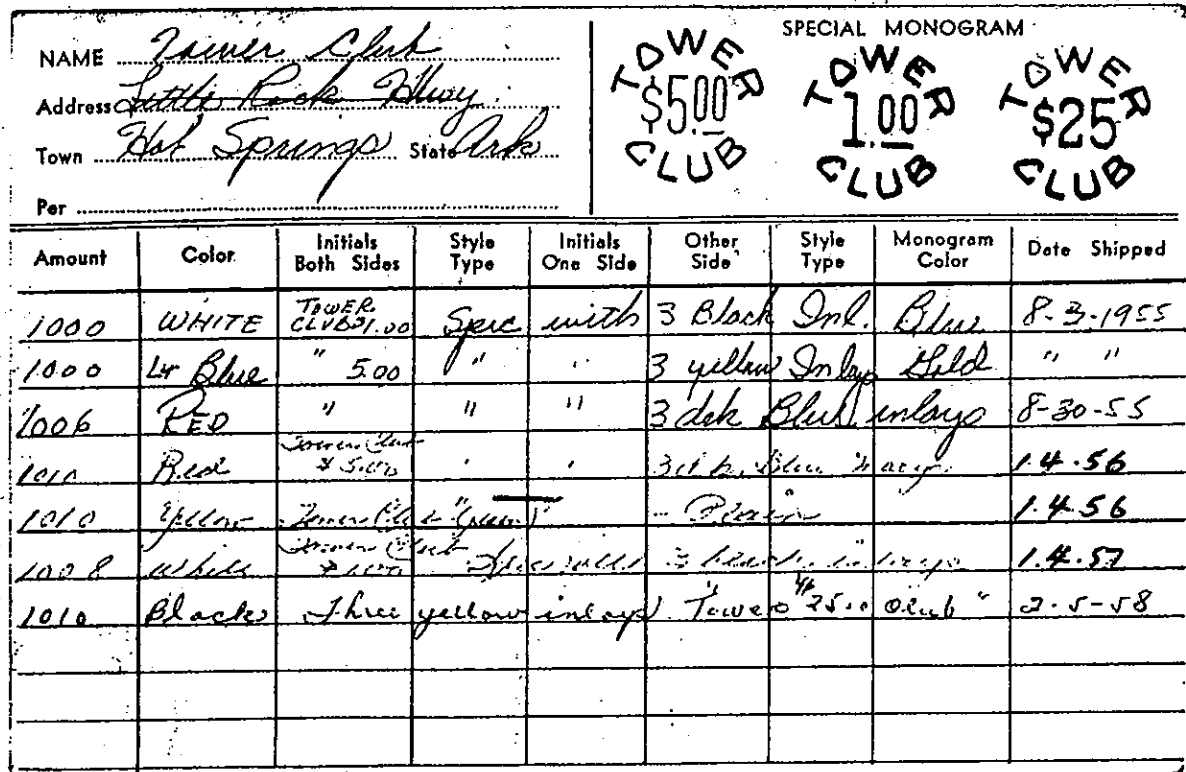 SPECIAL MONOGRAM
NAME Tower Club
Address Little Rock Hwy.
Town Hot Springs State Ark
Per
TOWER $5.00 CLUB
TOWER 1.00 CLUB
TOWER $25 CLUB
Amount Color Initials Both Sides Style Type Initials One Side Other Side Style Type Monogram Color Date Shipped
1000 WHITE TOWER CLUB $1.00 Spec with 3 Black Inl. Blue 8-3-1955
1000 Lt Blue " 5.00 " 3 yellow Inlays Gold " "
1006 RED " " " 3 drk Blue inlays 8-30-55
1010 Red Tower Club $5.00 3 Blue 1.4.56
1010 Yellow Tower Club Plain 1.4.56
1008 White Tower Club $1.00 3 inlays 1.4.57
1010 Black Three yellow inlays "Tower $25.00 Club" 2-5-58